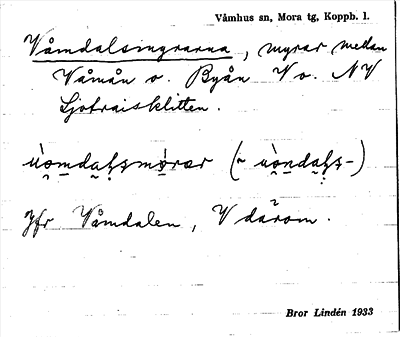 Våmhus sn, Mora tg, Koppb. l.
Våmdalsmyrarna, myrar mellan
Våmån o. Byån V o. NV
Ljotraisklitten.
ùo̯mdaḷsmỳrær (~ ùo̯ndaḷs-)
Jfr Våmdalen, V därom.
Bror Lindén 1933